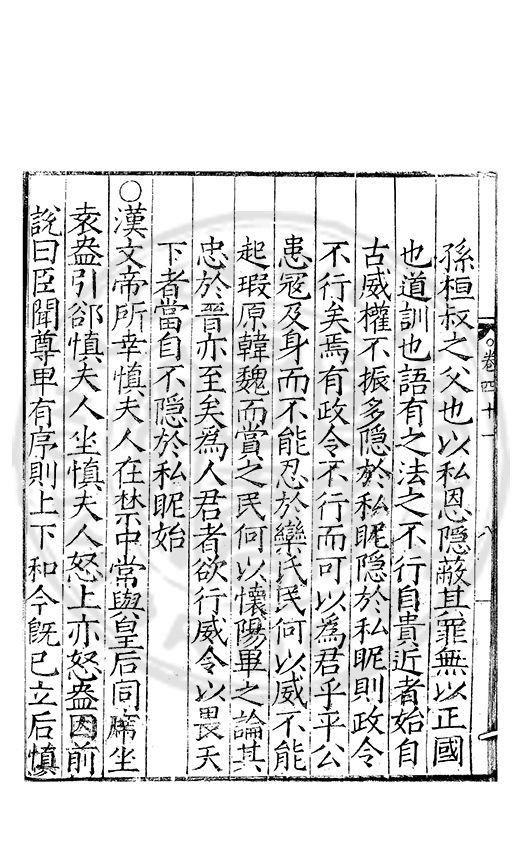 孫桓叔之父也以私恩隱蔽其罪無以正國
也道訓也語有之法之不行自貴近者始自
古威權不振多隱於私昵隱於私昵則政令
不行矣焉有政令不行而可以爲君乎平公
患寇及身而不能忍於欒氏民何以威不能
起瑕原韓魏而賞之民何以懷陽畢之論其
忠於晉亦至矣爲人君者欲行威令以畏天
下者當自不隱於私昵始
○漢文帝所幸慎夫人在禁中常與皇后同席坐
袁盎引郤慎夫人坐慎夫人怒上亦怒盎因前
說曰臣聞尊卑有序則上下和今旣已立后慎
卷四十一
八